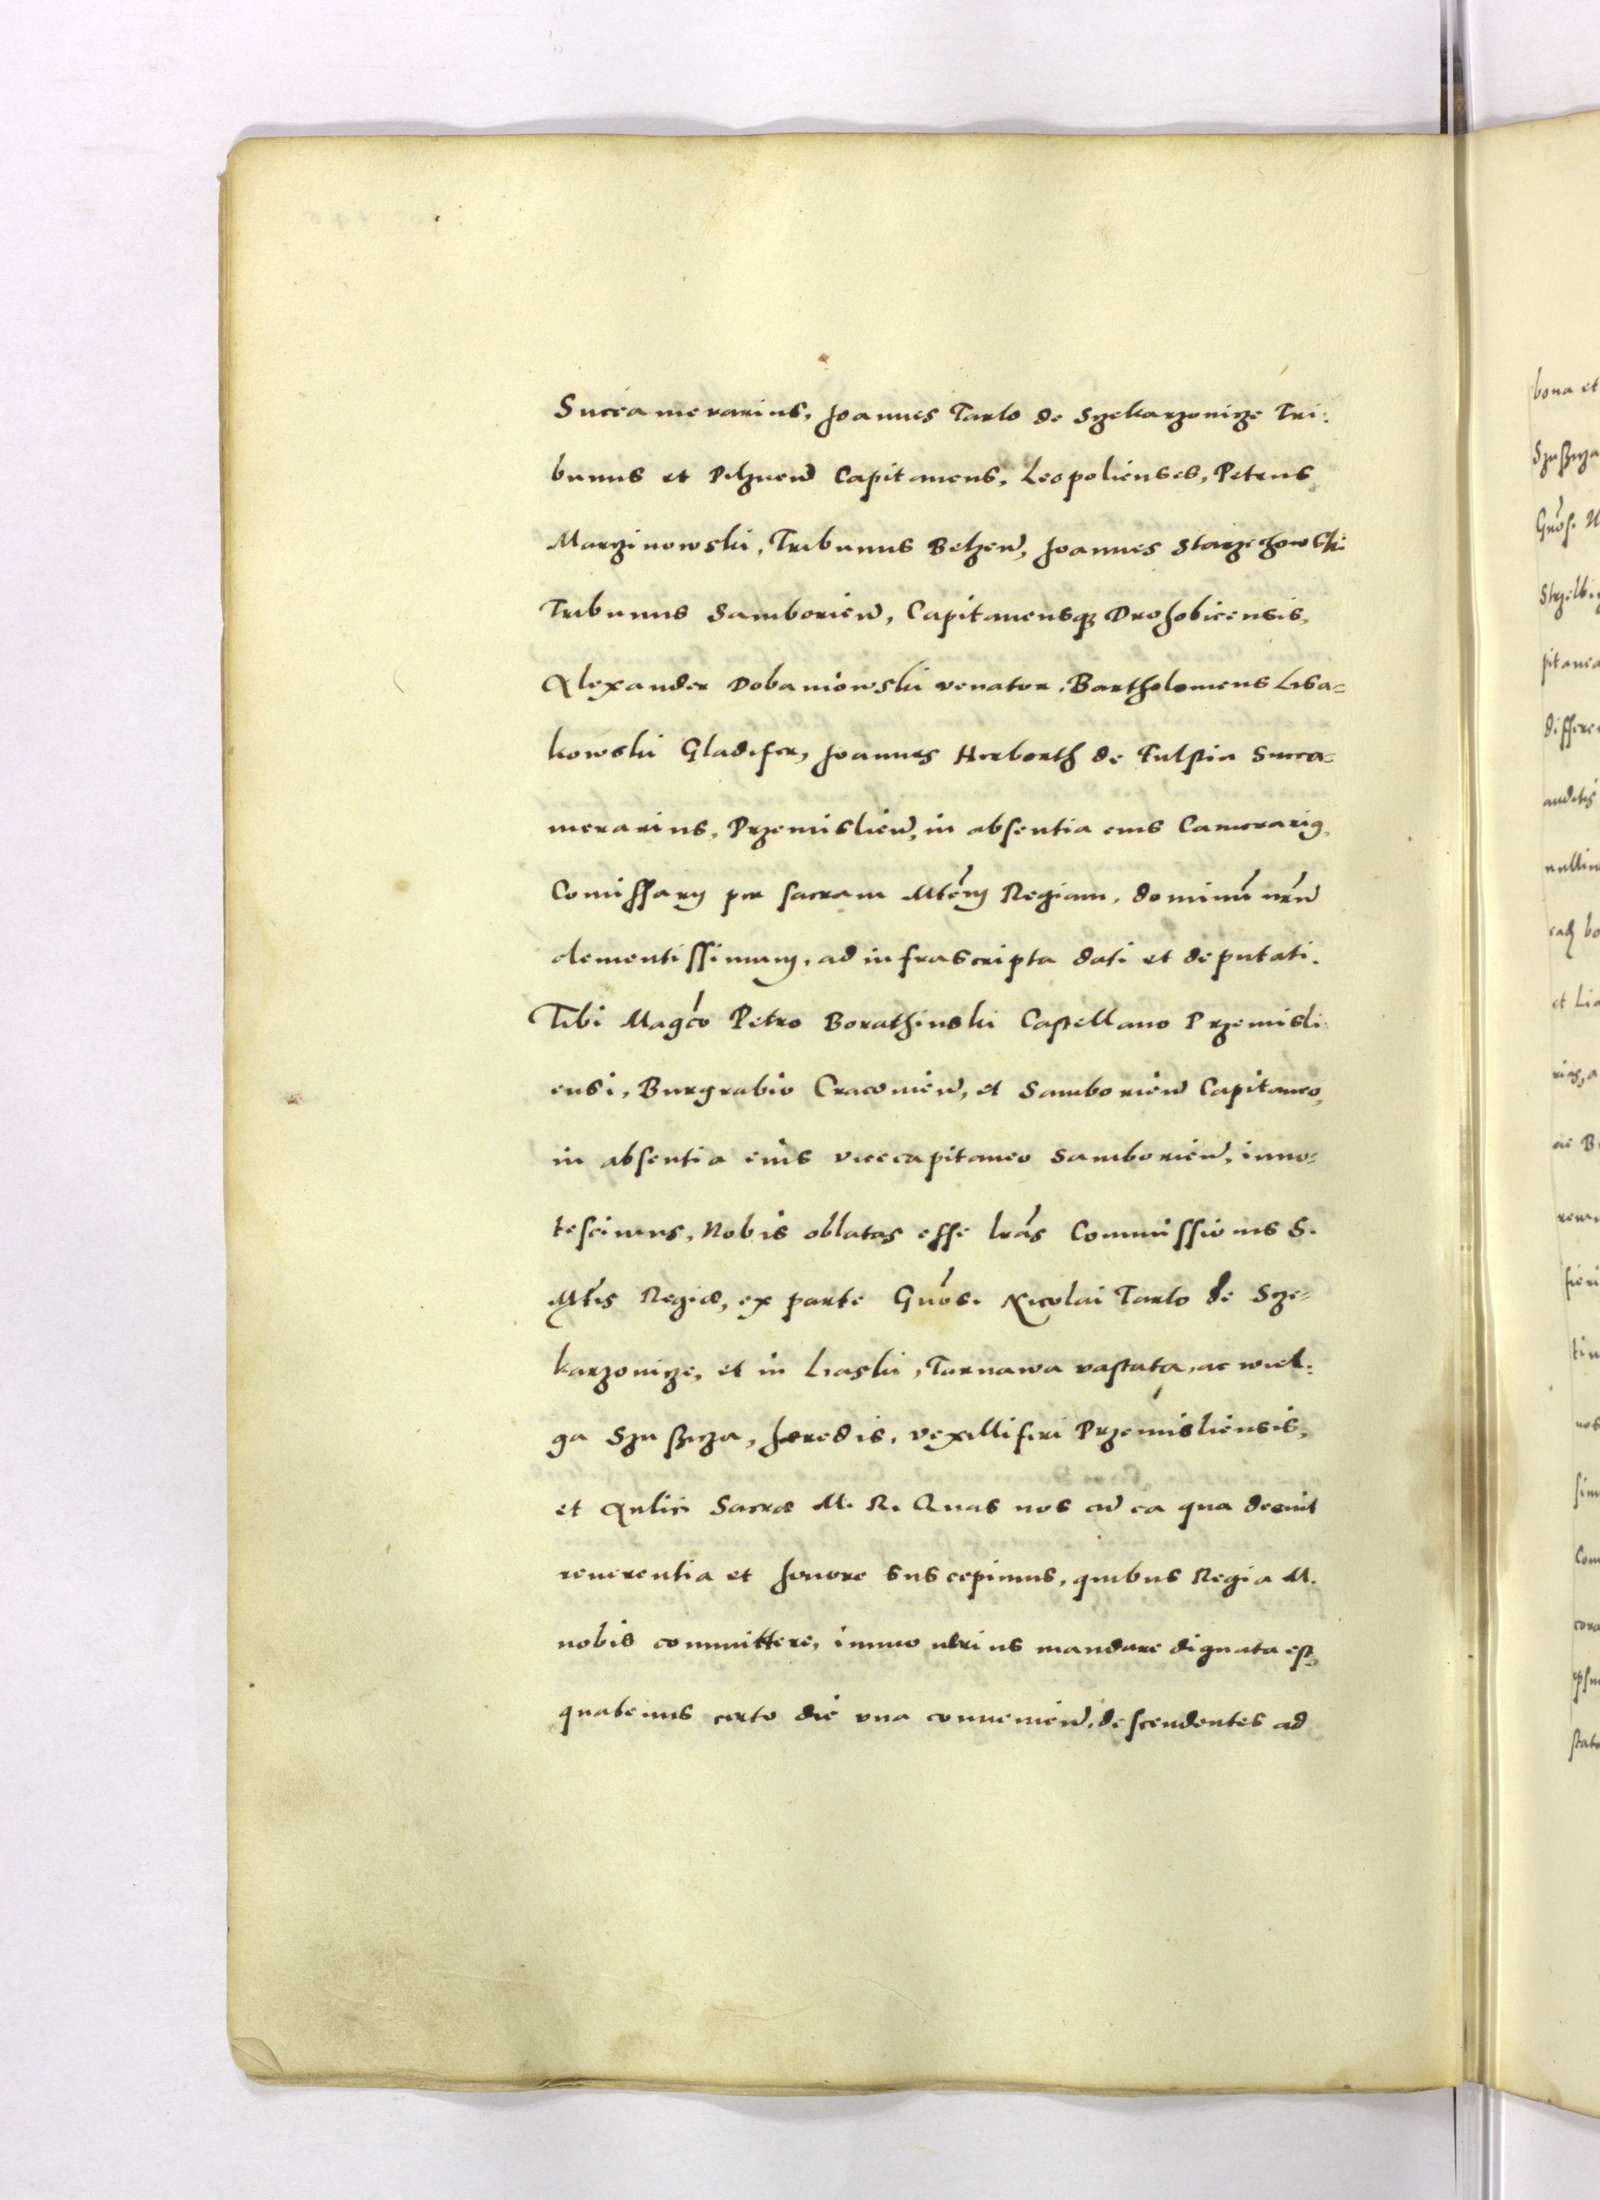 Succamerarius, Joannes Tarlo de Szekarzowicze Tri:
bunus et Pilznen̄ Capitaneus, Leopolienses, Petrus
Marzinowski, Tribunus Belzen̄, Joannes Starzechowski
Tribunus Samborien̄, Capitaneusq; Drohobicensis,
Alexander Dobaniowski venator, Bartholomeus Lisa=
kowski Gladifer, Joannes Herborth de Fulstin Succa=
merarius, Przemislien̄, in absentia eius Camerarig,
Comissarij per sacram Mtem Regiam, dominū nrm̄
clementissimum, ad infrascripta dati et deputati.
Tibi Magco Petro Borathinski Castellano Przemisli
ensi, Burgrabio Cracovien̄, et Samborien̄ Capitaneo,
in absentia eius vicecapitaneo Samborien̄, inno=
tescimus, Nobis oblatas esse lrās Commissionis S.
Mtis Regiæ, ex parte Gnōs. Nicolai Tarlo de Sze=
karzowicze, et in Liaski, Tarnawa vastata, ac wiel:
ga Szuszicza, hæredis, vexilliferi Przemisliensis,
et Aulici Sacræ M. R. Quas nos cū ea qua decuit
reuerentia et honore suscepimus, quibus Regia M.
nobis committere, immo verius mandare dignata est,
quatenus certo die vna conuenien̄, descendentes ad
bona et
Szuszicza
Gnōs. N
pitanea
auditis
et Lia